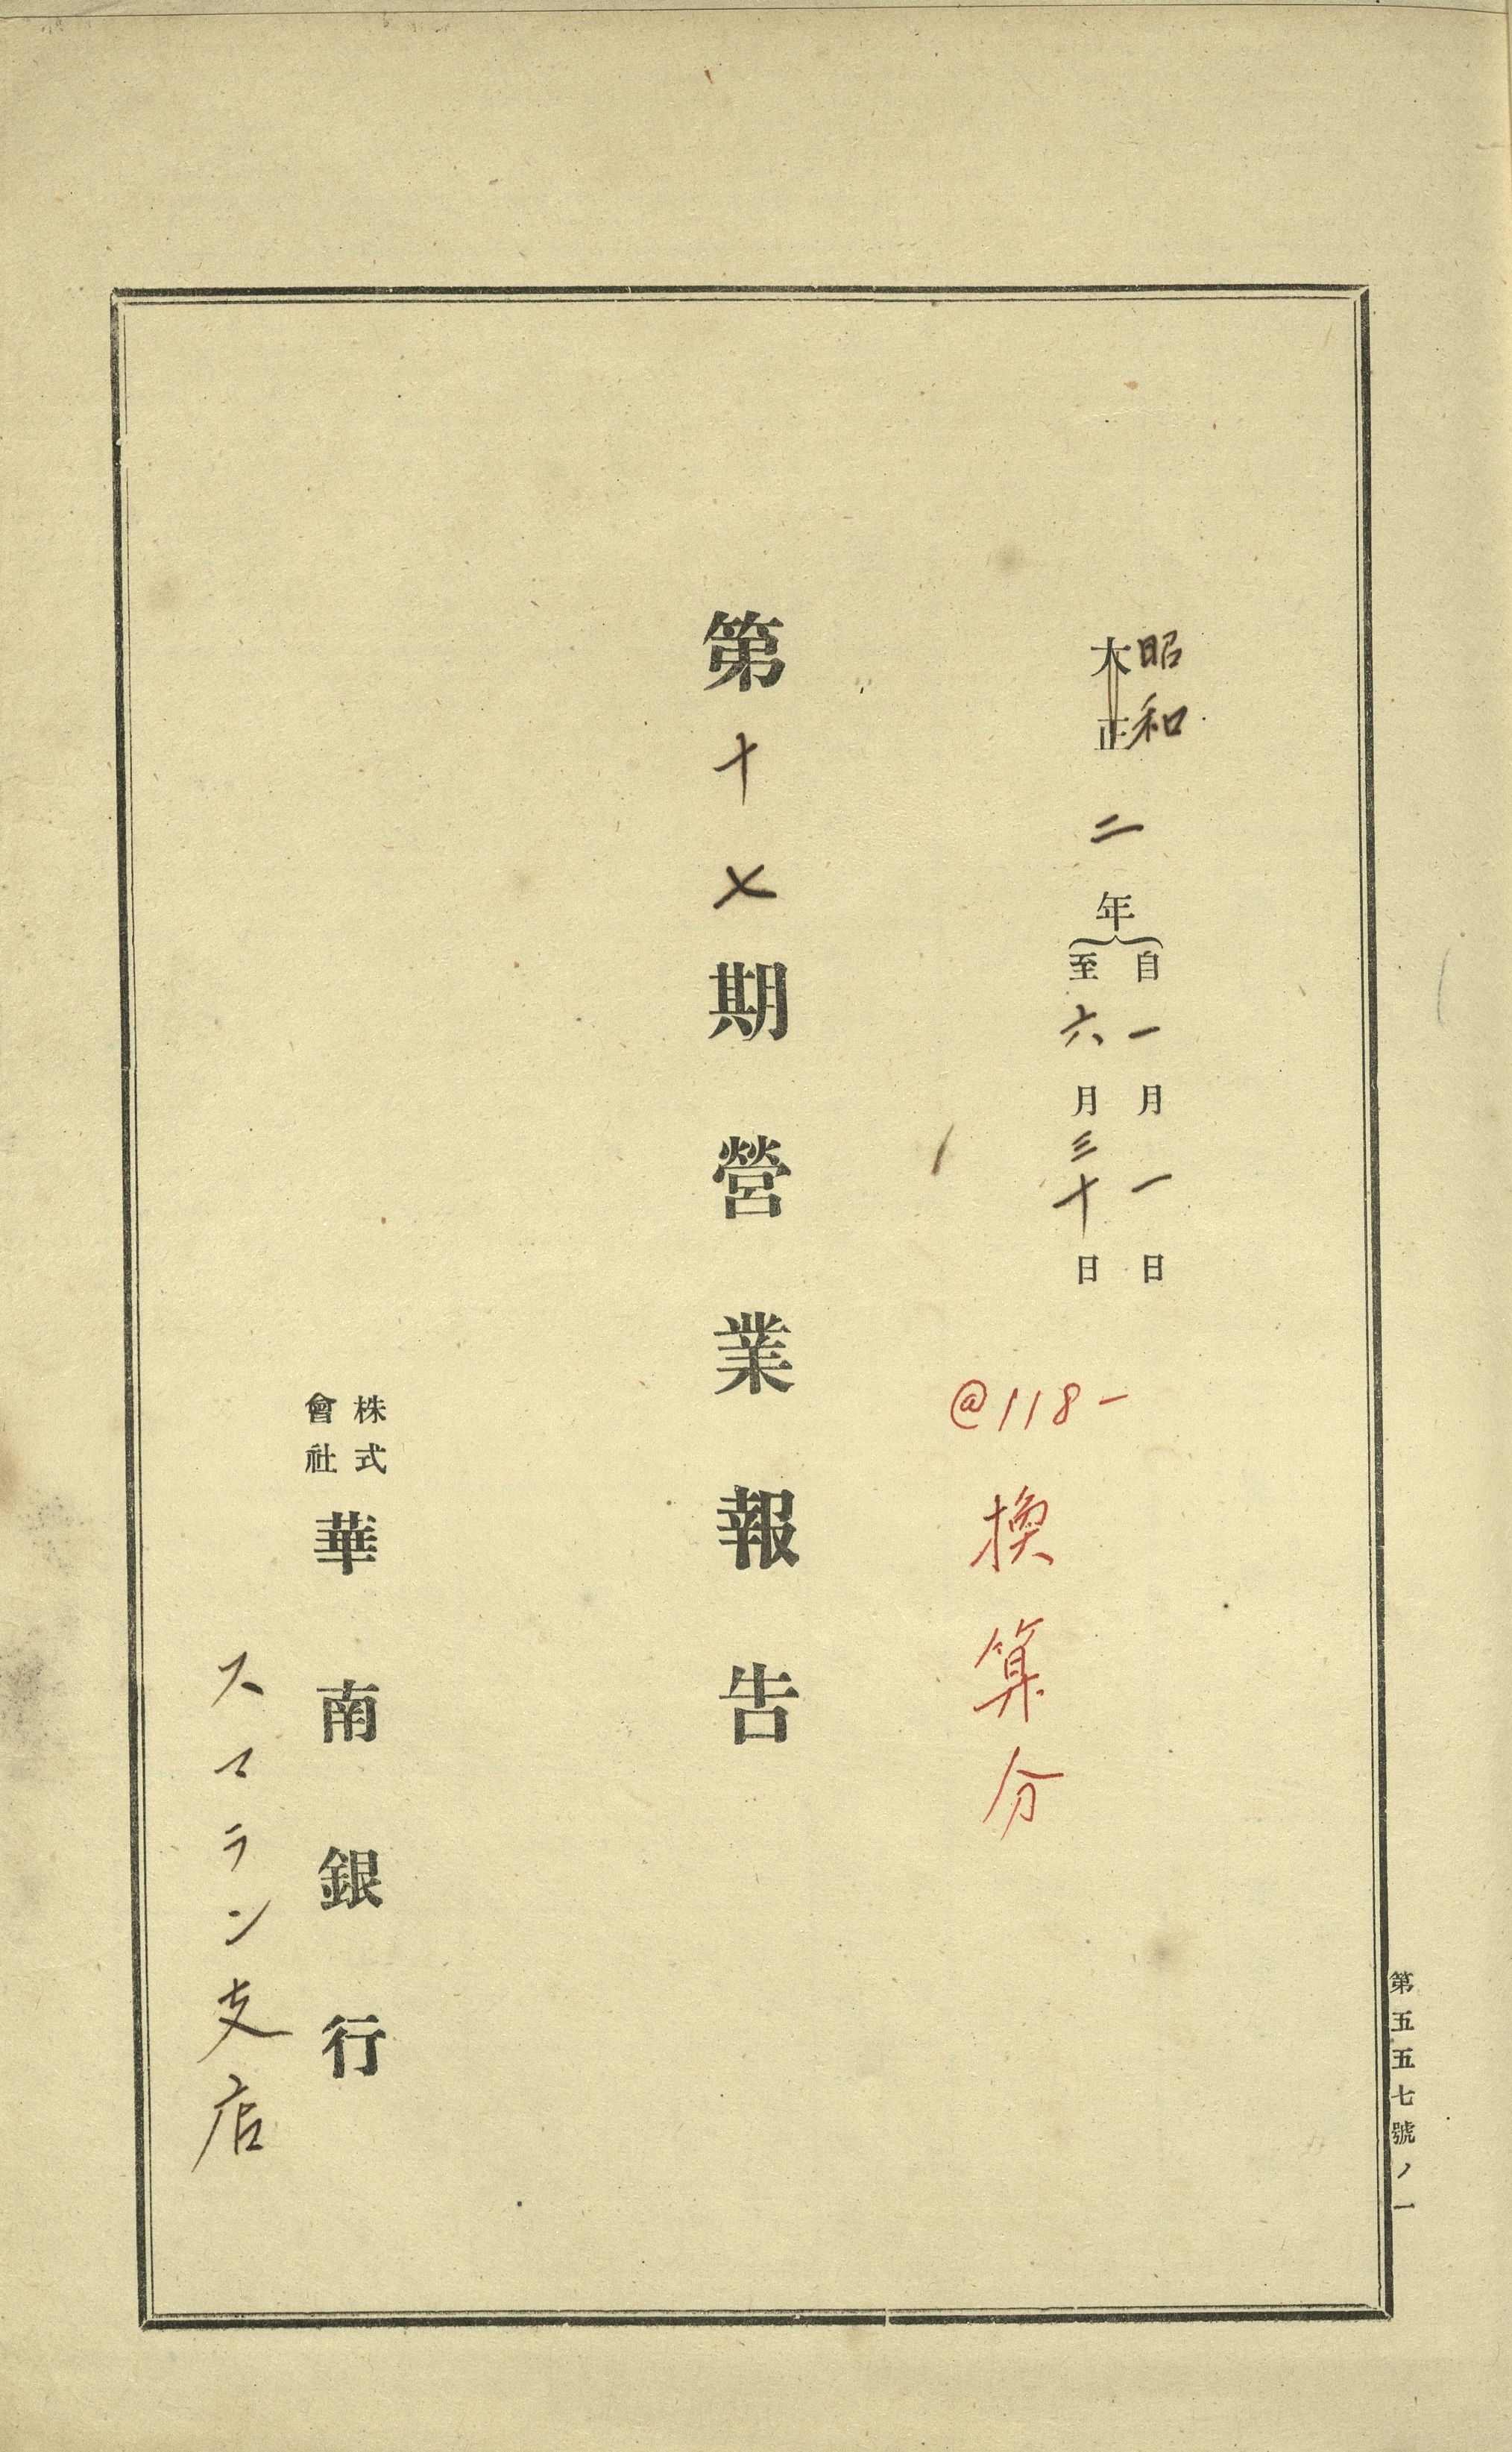 第五五七號ノ一
昭和
大正
二年
自一月一日
至六月三十日
@118-
換算分
第十七期營業報告
株式
會社
華南銀行
スマラン支店